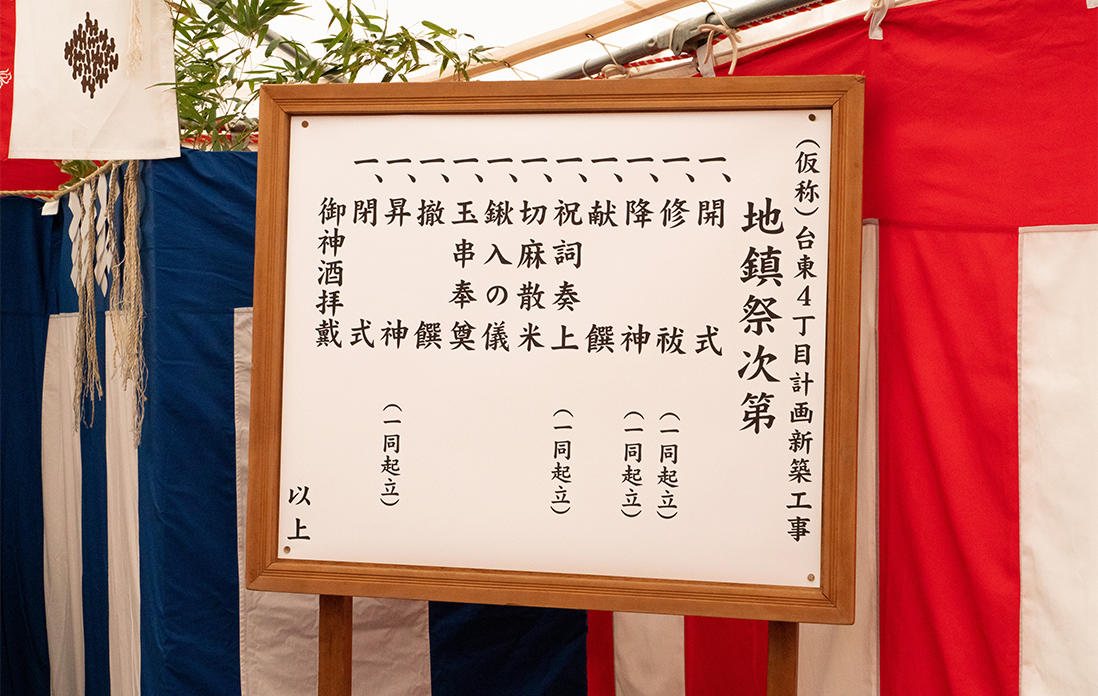 (仮称)台東4丁目計画新築工事
地鎮祭次第
一、開式
一、修祓(一同起立)
一、降神(一同起立)
一、献饌
一、祝詞奏上(一同起立)
一、切麻散米
一、鍬入の儀
一、玉串奉奠
一、撤饌
一、昇神(一同起立)
一、閉式
御神酒拝戴
以上